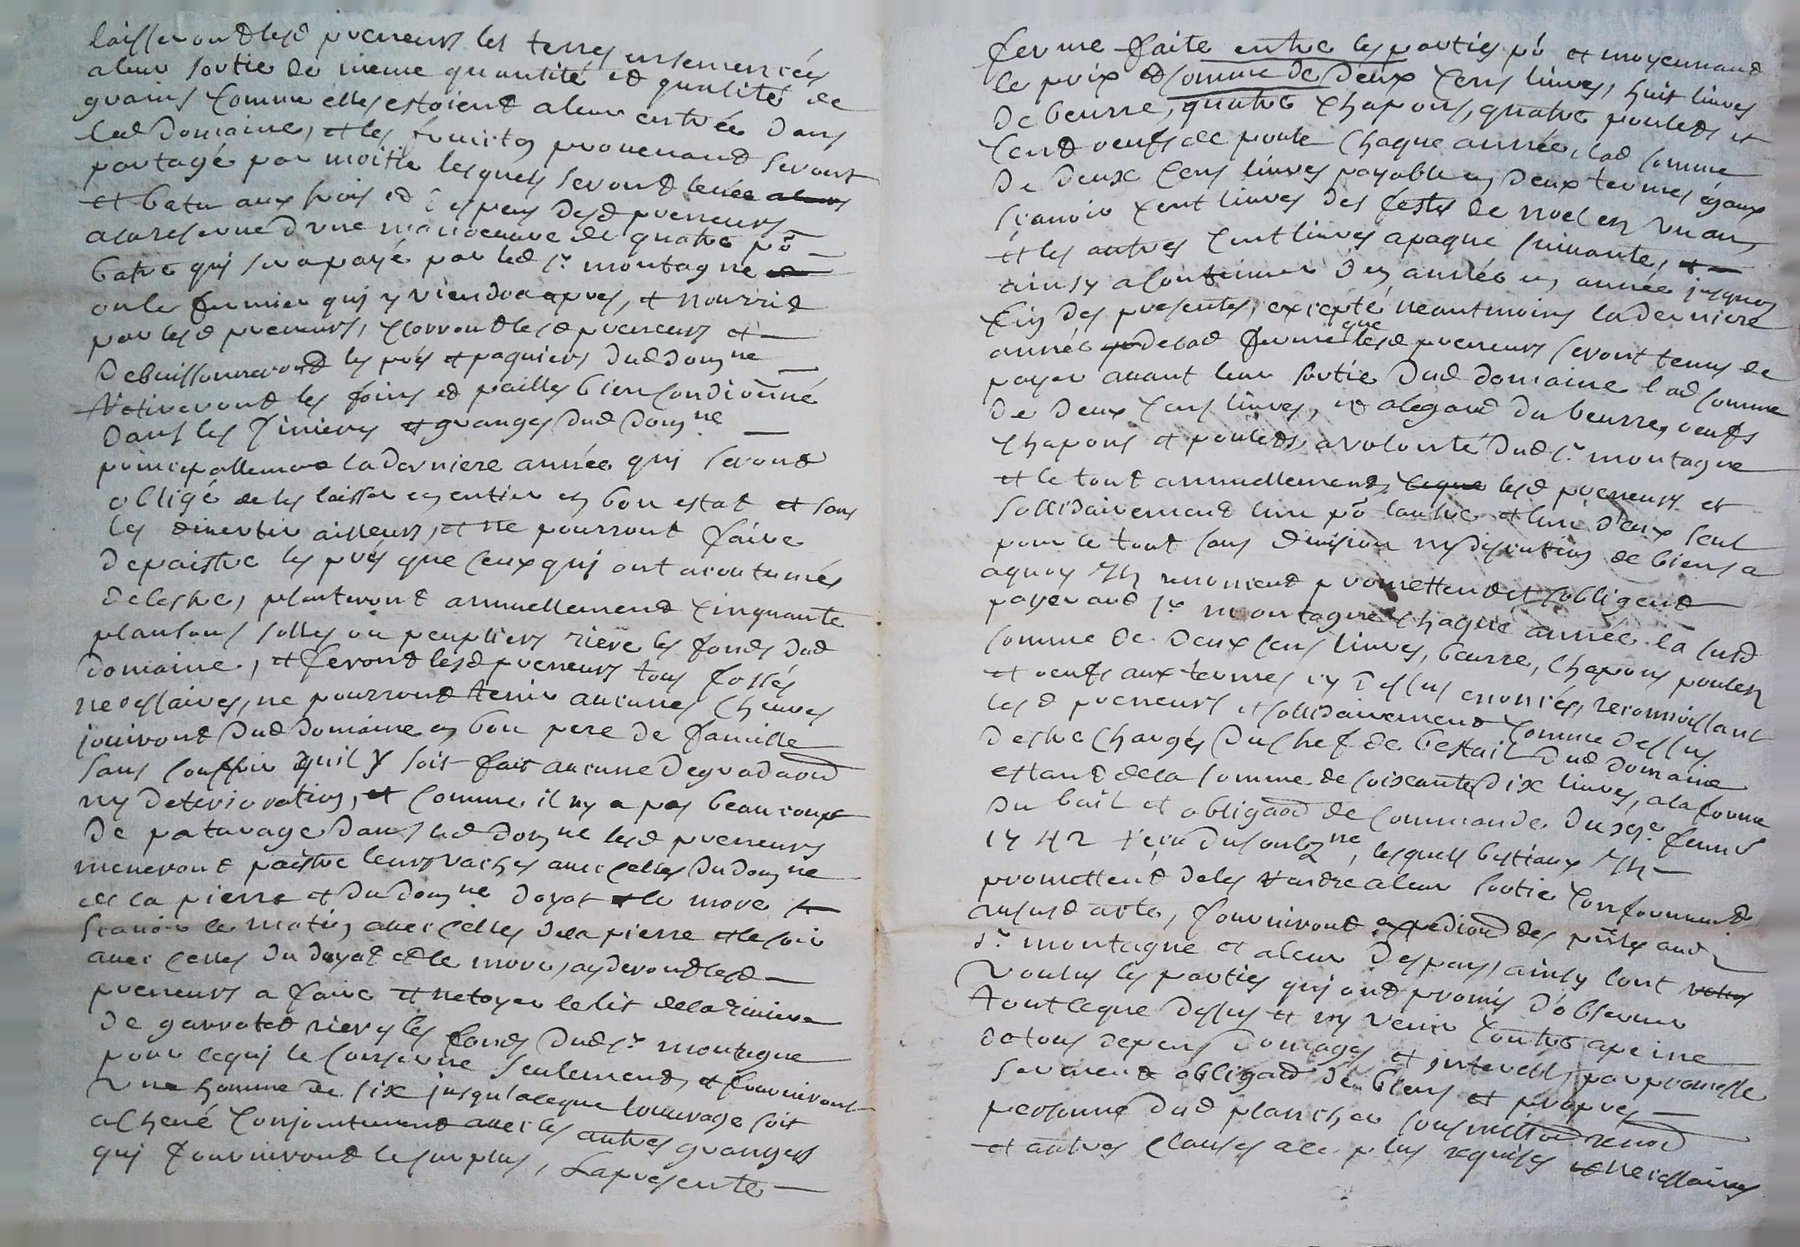 laisseront lesd preneurs les terres ensemencées
a leur sortie de meme quantité et qualité de
grains comme elles estoient a leur entrée dans
led domaine, et les fruicts provenand seront
partagé par moitié lesquels seront levée aleurs
et batu aux frais et despens desd preneurs
a la reserve d'une manoeuvre de quatre pr
batre qui sera payé par led sr montagne et
ou le fermier qui y viendra apres, et nourrid
par lesd preneurs, clorront lesd preneurs et
debuissonneront les prés et paquiers dud domne
Retireront les foins et pailles bien condionné
dans les finieres et granges dud domne
principallement la derniere année qui seront
obligé de les laisser en entier en bon estat et sans
les divertir ailleurs, et ne pourront faire
depaistre les prés que ceux qui ont acoutumés
de lestre, planteront annuellement cinquante
plansons solles ou peupliers riere les fonds dud
domaine, et feront lesd preneurs tous fossés
necessaires, ne pourront tenir aucunes chevres
jouiront dud domaine en bon pere de famille
sans souffrir quil y soit fait aucune degradaon
ny deterioration, et comme il ny a pas beaucoupt
de paturage dans led domne lesd preneurs
meneront paistre leurs vaches avec celles du domne
de la pierre et du domne doyat et le more
scavoir le matin avec celles de la pierre et le soir
avec celles du doyat et le more, ayderont lesd
preneurs a faire et netoyer le lit de la riviere
de garrotet riere les fonds dud sr montagne
pour cequi le conserne seulement, et fourniront
une homme de six jusqu'aceque louvrage soit
achevé conjointement avec les autres grangers
qui fourniront le surplus, La presente
ferme faite entre les parties pr et moyennand
le prix et somme de deux cens livres, huit livres
de beurre, quatre chapons, quatre poulets et
cent oeufs de poule chaque année, lad somme
de deux cens livres payable en deux termes égaux
scavoir cent livres des festes de noel en un an
et les autres cent livres a paque suivante, et
ainsy a continuer d'en année en année jusques
fin des presentes, excepté neantmoins la derniere
année de lad ferme que lesd preneurs seront tenus de
payer avant leur sortie dud domaine lad somme
de deux cens livres, et alegard du beurre, oeufs
chapons et poulets, a volonté dud sr montagne
et le tout annuellement, ceque lesd preneurs et
sollidairement lun pr lautre et lun d'eux seul
pour le tout sans division ny discution de biens a
aquoy ils renoncent promettend et s'obligent
payer aud sr montagne chaque année la susd
somme de deux cens livres, beurre, chapons poulets
et oeufs aux termes cy dessus enoncés, reconnoissant
lesd preneurs et sollidairement comme dessus
destre chargés du chef de bestail dud domaine
estant de la somme de soixante dix livres, a la forme
du bail et obligaon de commande du xxje fevrier
1742 receu du soubzne, lesquels bestiaux ils
promettent de les rendre a leur sortie conformement
aususd acte, fourniront expedion des pntes aud
sr montagne et a leur despens, ainsy lont
voulus les parties qui ont promis d'observer
tout ceque dessus et ny venir contre a peine
de tous depens domages et interests, par promesse
serment obligaon de biens et propres
personne dud plancher sousmission renon
et autres clauses de plus requises et necessaires